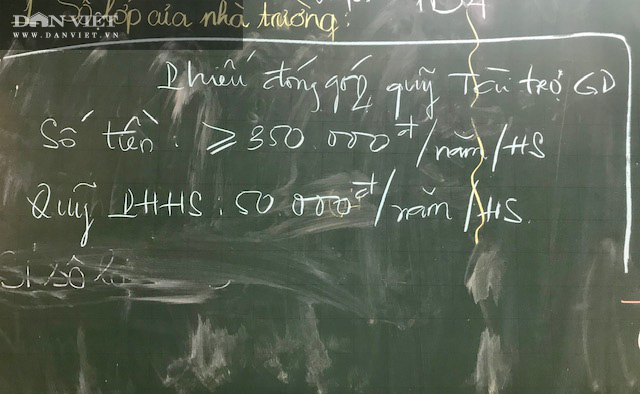 DANVIET
WWW.DANVIET.VN
1. Số lớp của nhà trường:
Phiếu đóng góp quỹ Tài trợ GD
Số tiền: ≥ 350.000đ/năm/HS
Quỹ PHHS: 50.000đ/năm/HS.
Sĩ số